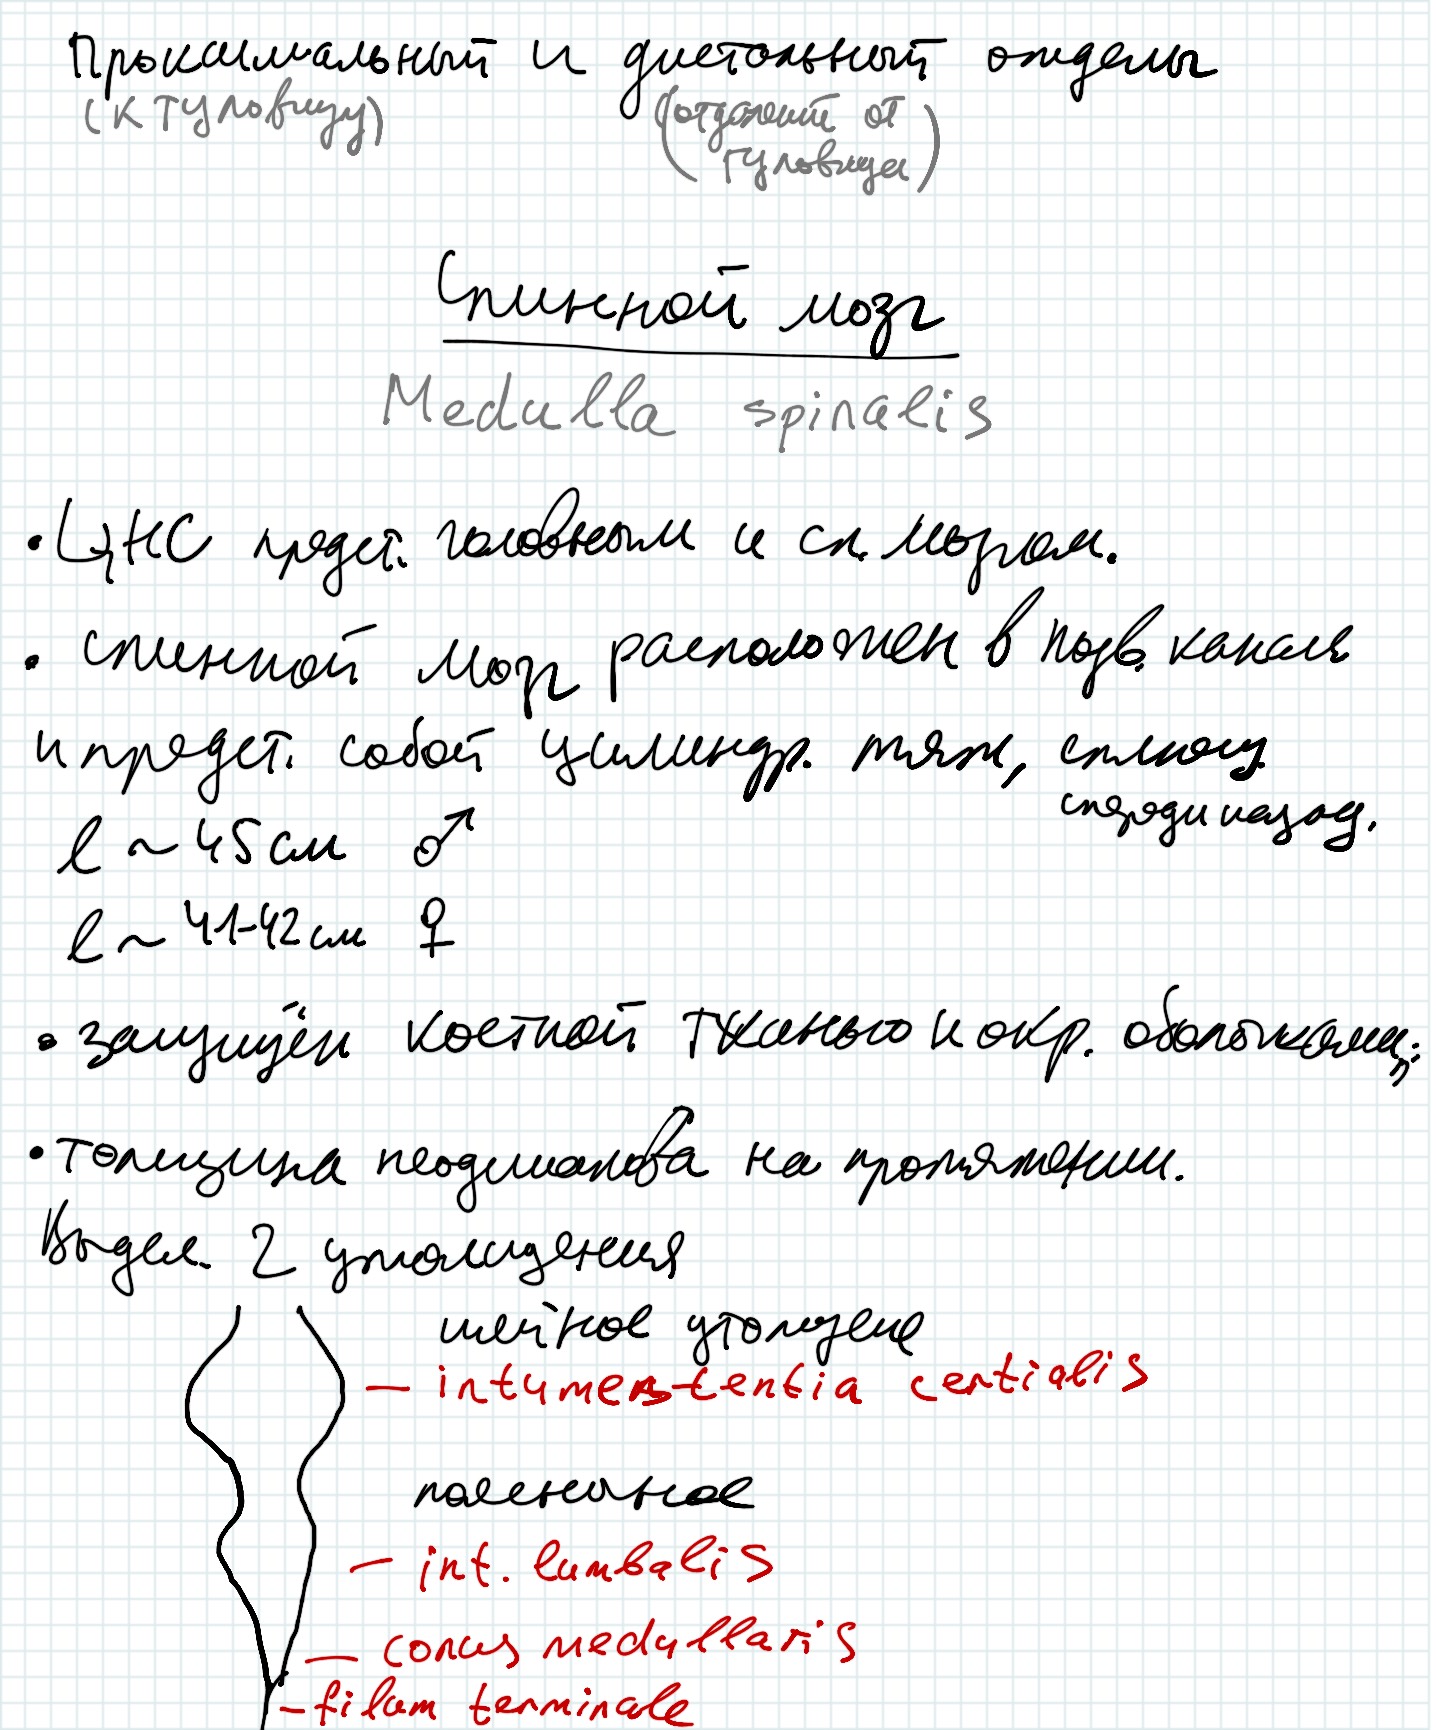 Проксимальный и дистальный отделы
(к туловищу) (отдалений от
туловища)
Спинной мозг
Medulla spinalis
• ЦНС предст. головным и сп. мозгом.
• спинной мозг расположен в позв. канале
и предст. собой цилиндр. тяж, сплющ.
спереди назад.
l ~ 45 см ♂
l ~ 41-42 см ♀
• защищён костной тканью и окр. оболочками;
• толщина неодинакова на протяжении.
Выдел. 2 утолщения
шейное утолщение
— intumenstentia centialis
поясничное
— int. lumbalis
— conus medullaris
— filum terminale